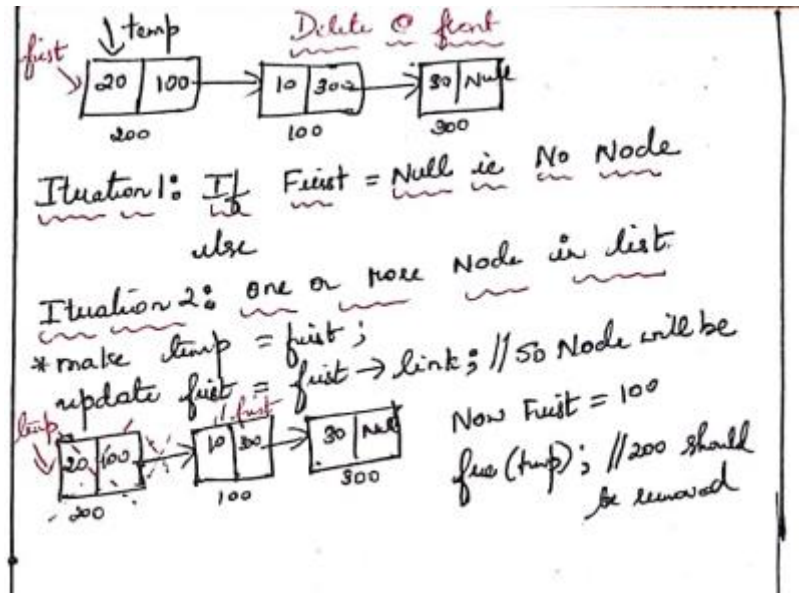 temp Delete @ front
first
20 100 10 300 30 Null
200 100 300
Ituation 1: If First = Null ie No Node
else
Ituation 2: one or more Node in list.
* make temp = first;
update first = first → link; // so Node will be
Now First = 100
temp first
20 100 10 300 30 Null
200 100 300
free (temp); // 200 should
be removed